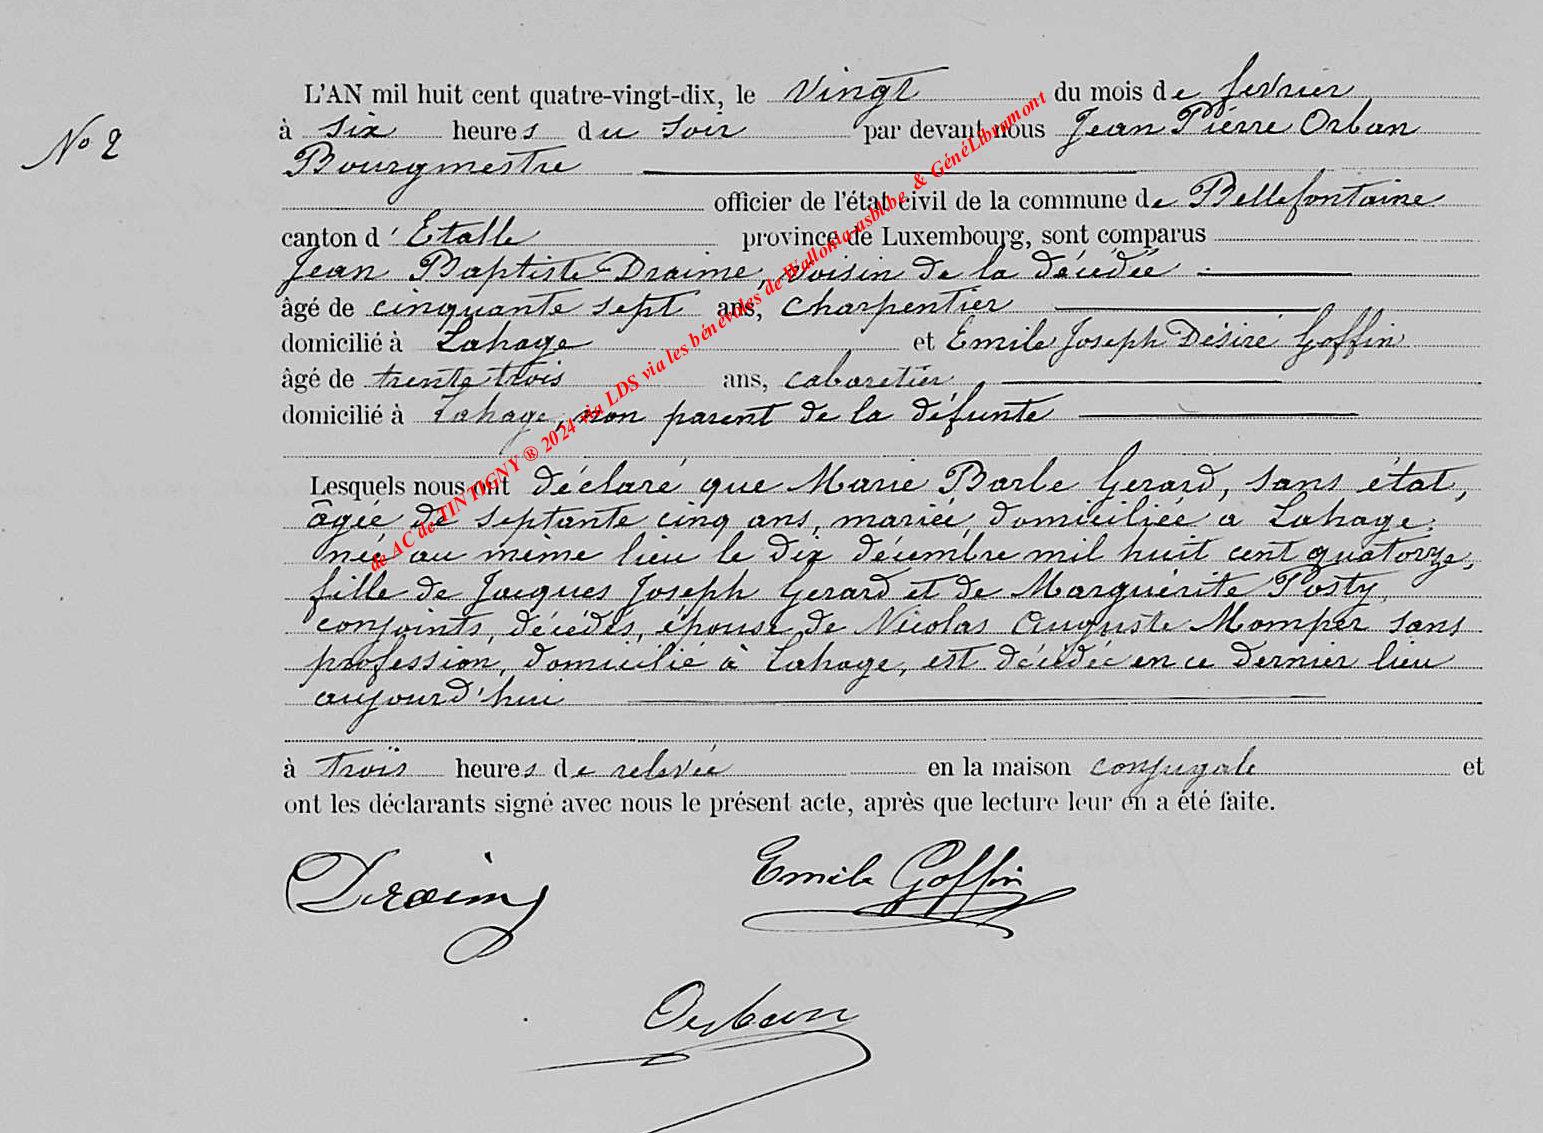 L'AN mil huit cent quatre-vingt-dix, le vingt du mois de fevrier
No 2
à six heures du soir par devant nous Jean Pierre Orban
Bourgmestre
officier de l'état civil de la commune de Bellefontaine
canton d'Etalle province de Luxembourg, sont comparus
Jean Baptiste Draime, voisin de la décédée
âgé de cinquante sept ans, charpentier
domicilié à Lahage et Emile Joseph Désiré Goffin
âgé de trente trois ans, cabaretier,
domicilié à Lahage, non parent de la défunte
Lesquels nous ont déclaré que Marie Barbe Gerard, sans état,
âgée de septante cinq ans, mariée, domiciliée a Lahage,
née au même lieu le dix décembre mil huit cent quatorze,
fille de Jacques Joseph Gerard et de Marguérite Posty,
conjoints, décédés, épouse de Nicolas Auguste Momper sans
profession, domicilié à Lahage, est décédée en ce dernier lieu
aujourd'hui
à trois heures de relevée en la maison conjugale et
ont les déclarants signé avec nous le présent acte, après que lecture leur en a été faite.
Draime Emile Goffin
Orban
de AC de TINTIGNY ® 2024 via LDS via les bénévoles de Wallonia asbl.be & GénéLibramont